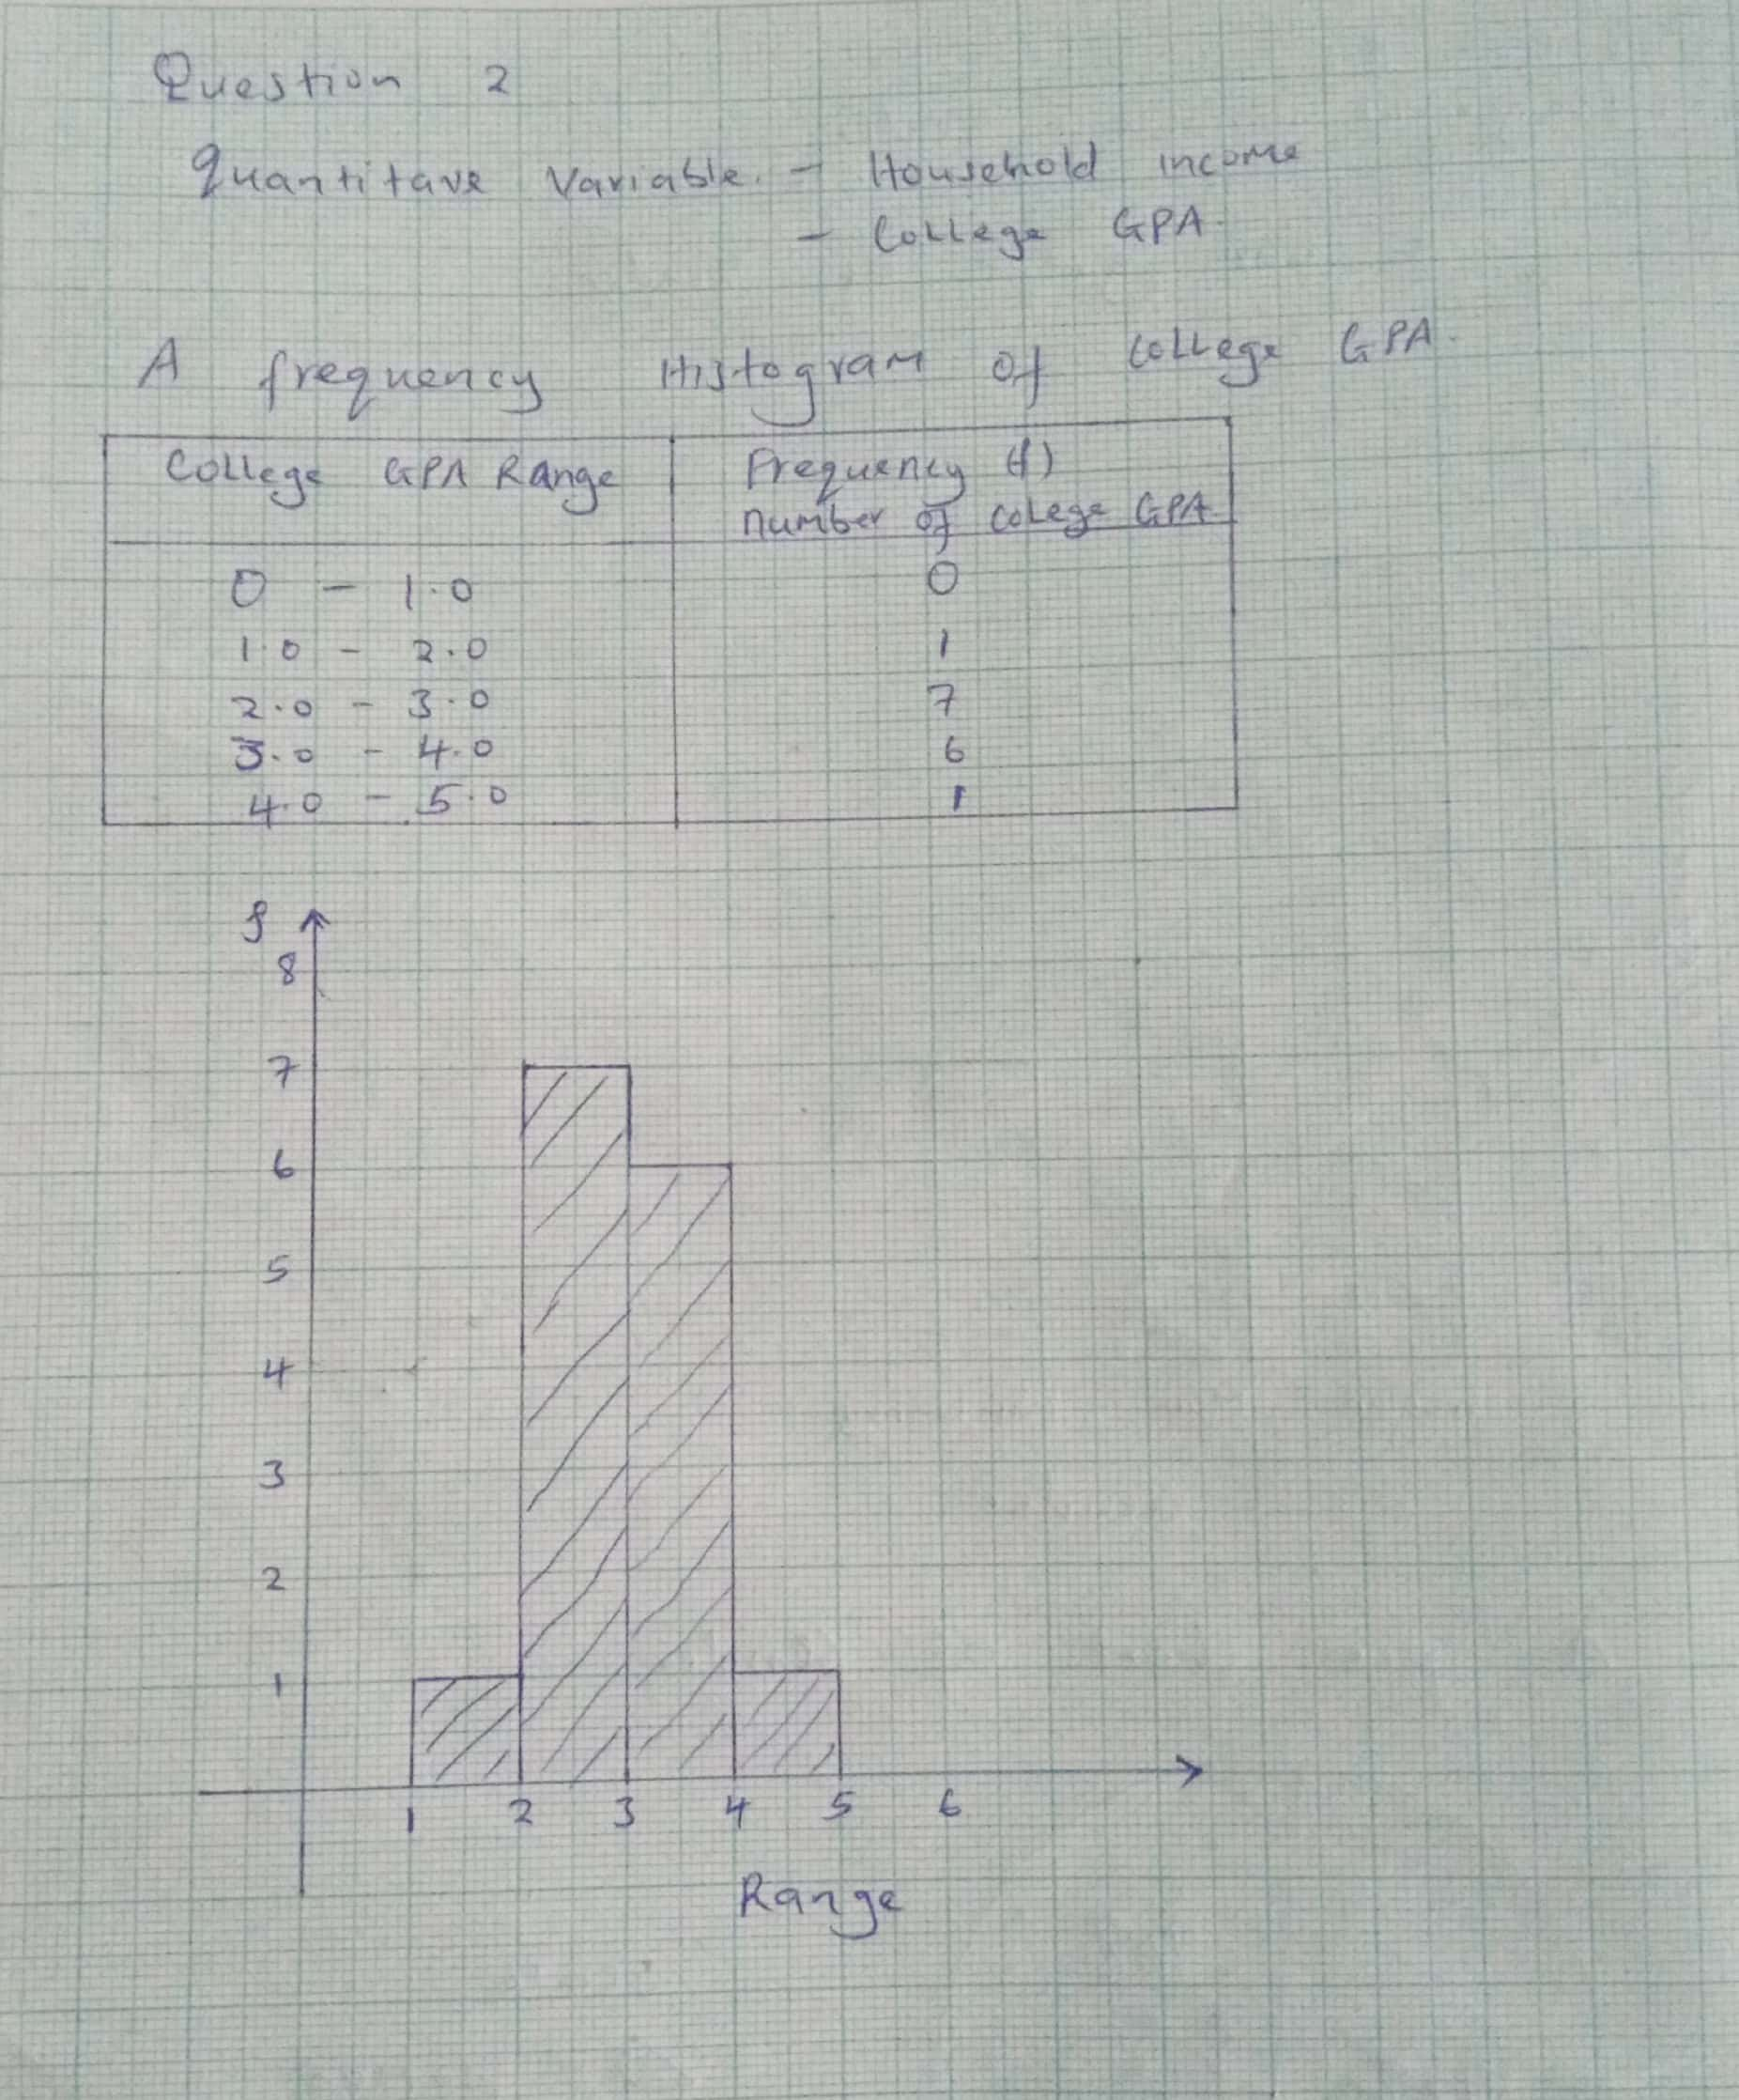 Question 2
Quantitave Variable. - Household income
- College GPA.
A frequency Histogram of College GPA.
College GPA Range Frequency (f)
number of colege GPA
0 - 1.0 0
1.0 - 2.0 1
2.0 - 3.0 7
3.0 - 4.0 6
4.0 - 5.0 1
f
8
7
6
5
4
3
2
1
1 2 3 4 5 6
Range